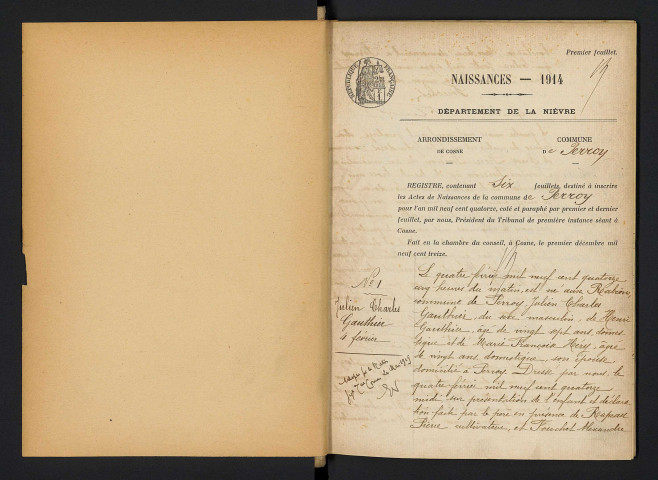 Premier feuillet.
RÉPUBLIQUE FRANÇAISE
NAISSANCES — 1914
DÉPARTEMENT DE LA NIÈVRE
ARRONDISSEMENT
DE COSNE
COMMUNE
De Perroy
REGISTRE, contenant Six feuillets, destiné à inscrire
les Actes de Naissances de la commune de Perroy
pour l'an mil neuf cent quatorze, coté et paraphé par premier et dernier
feuillet, par nous, Président du Tribunal de première instance séant à
Cosne.
Fait en la chambre du conseil, à Cosne, le premier décembre mil
neuf cent treize.
No 1
Julien Charles
Gauthier
4 février
Le quatre février mil neuf cent quatorze
cinq heures du matin, est né aux
commune de Perroy, Julien Charles
Gauthier du sexe masculin, de Henri
Gauthier, âgé de vingt sept ans, domes
tique et de Marie Françoise Méry, âgée
de vingt ans domestique, son épouse
domiciliés à Perroy. Dressé par nous, le
quatre février mil neuf cent quatorze
midi sur présentation de l'enfant et déclara
tion faite par le père en présence de
Pierre cultivateur, et Pouchot Alexandre